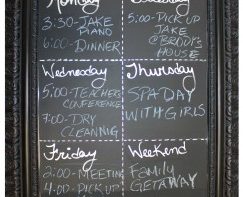 Monday
3:30-JAKE
PIANO
6:00-DINNER
5:00-PICK UP
JAKE
@BRODY'S
HOUSE
Wednesday
5:00-TEACHERS
CONFERENCE
7:00-DRY
CLEANNIG
Thursday
SPA DAY
WITH GIRLS
Friday
2:00-MEETING
4:00-PICK UP
Weekend
FAMILY
GETAWAY